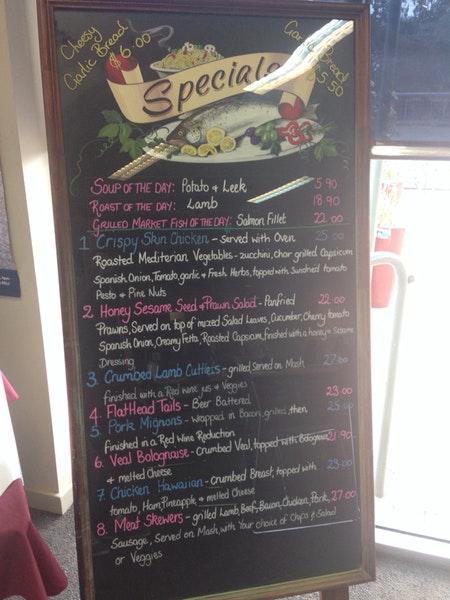 Cheesy
Garlic Bread
$6.00
Garlic Bread
$5.50
Specials
SOUP OF THE DAY: Potato & Leek 5.90
ROAST OF THE DAY: Lamb 18.90
GRILLED MARKET FISH OF THE DAY: Salmon Fillet 22.00
1. Crispy Skin Chicken - served with Oven 25.00
Roasted Mediterian Vegetables - zucchini, char grilled Capsicum
Spanish Onion, Tomato, garlic & Fresh Herbs, topped with Sundried tomato
Pesto & Pine Nuts
2. Honey Sesame Seed & Prawn Salad - Panfried 22.00
Prawns, Served on top of mixed Salad Leaves, Cucumber, Cherry tomato
Spanish Onion, Creamy Fetta, Roasted Capsicum, finished with a honey & Sesame
Dressing
3. Crumbed Lamb Cutlets - grilled, Served on Mash 27.00
finished with a Red wine jus & Veggies
4. FlatHead Tails - Beer Battered 23.00
5. Pork Mignons - wrapped in Bacon, grilled, then 25.00
finished in a Red Wine Reduction
6. Veal Bolognaise - Crumbed Veal, topped with Bolognaise 21.90
& melted Cheese
7. Chicken Hawaiian - crumbed Breast, topped with 23.00
tomato, Ham, Pineapple & melted Cheese
8. Meat Skewers - grilled Lamb, Beef, Bacon, Chicken, Pork, 27.00
Sausage, Served on Mash, with Your choice of Chips & Salad
or Veggies